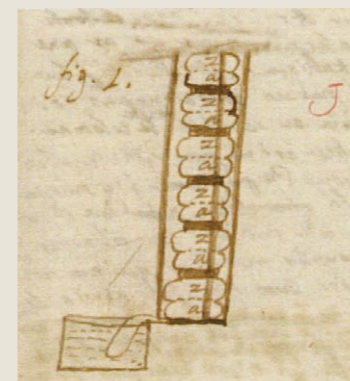 fig. 1.
z
a
J
z
a
z
a
z
a
z
a
z
a